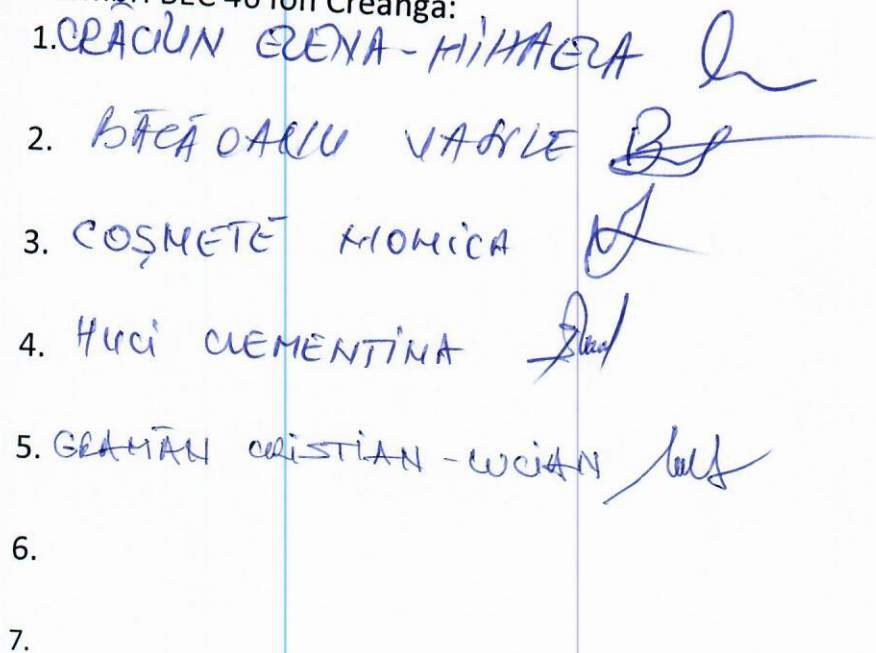 BEC 40 Ion Creangă:
1. CRĂCIUN ELENA-MIHAELA
2. BĂCĂOANU VASILE
3. COȘMETE MONICA
4. HUCI CLEMENTINA
5. GRAMĂN CRISTIAN-LUCIAN
6.
7.